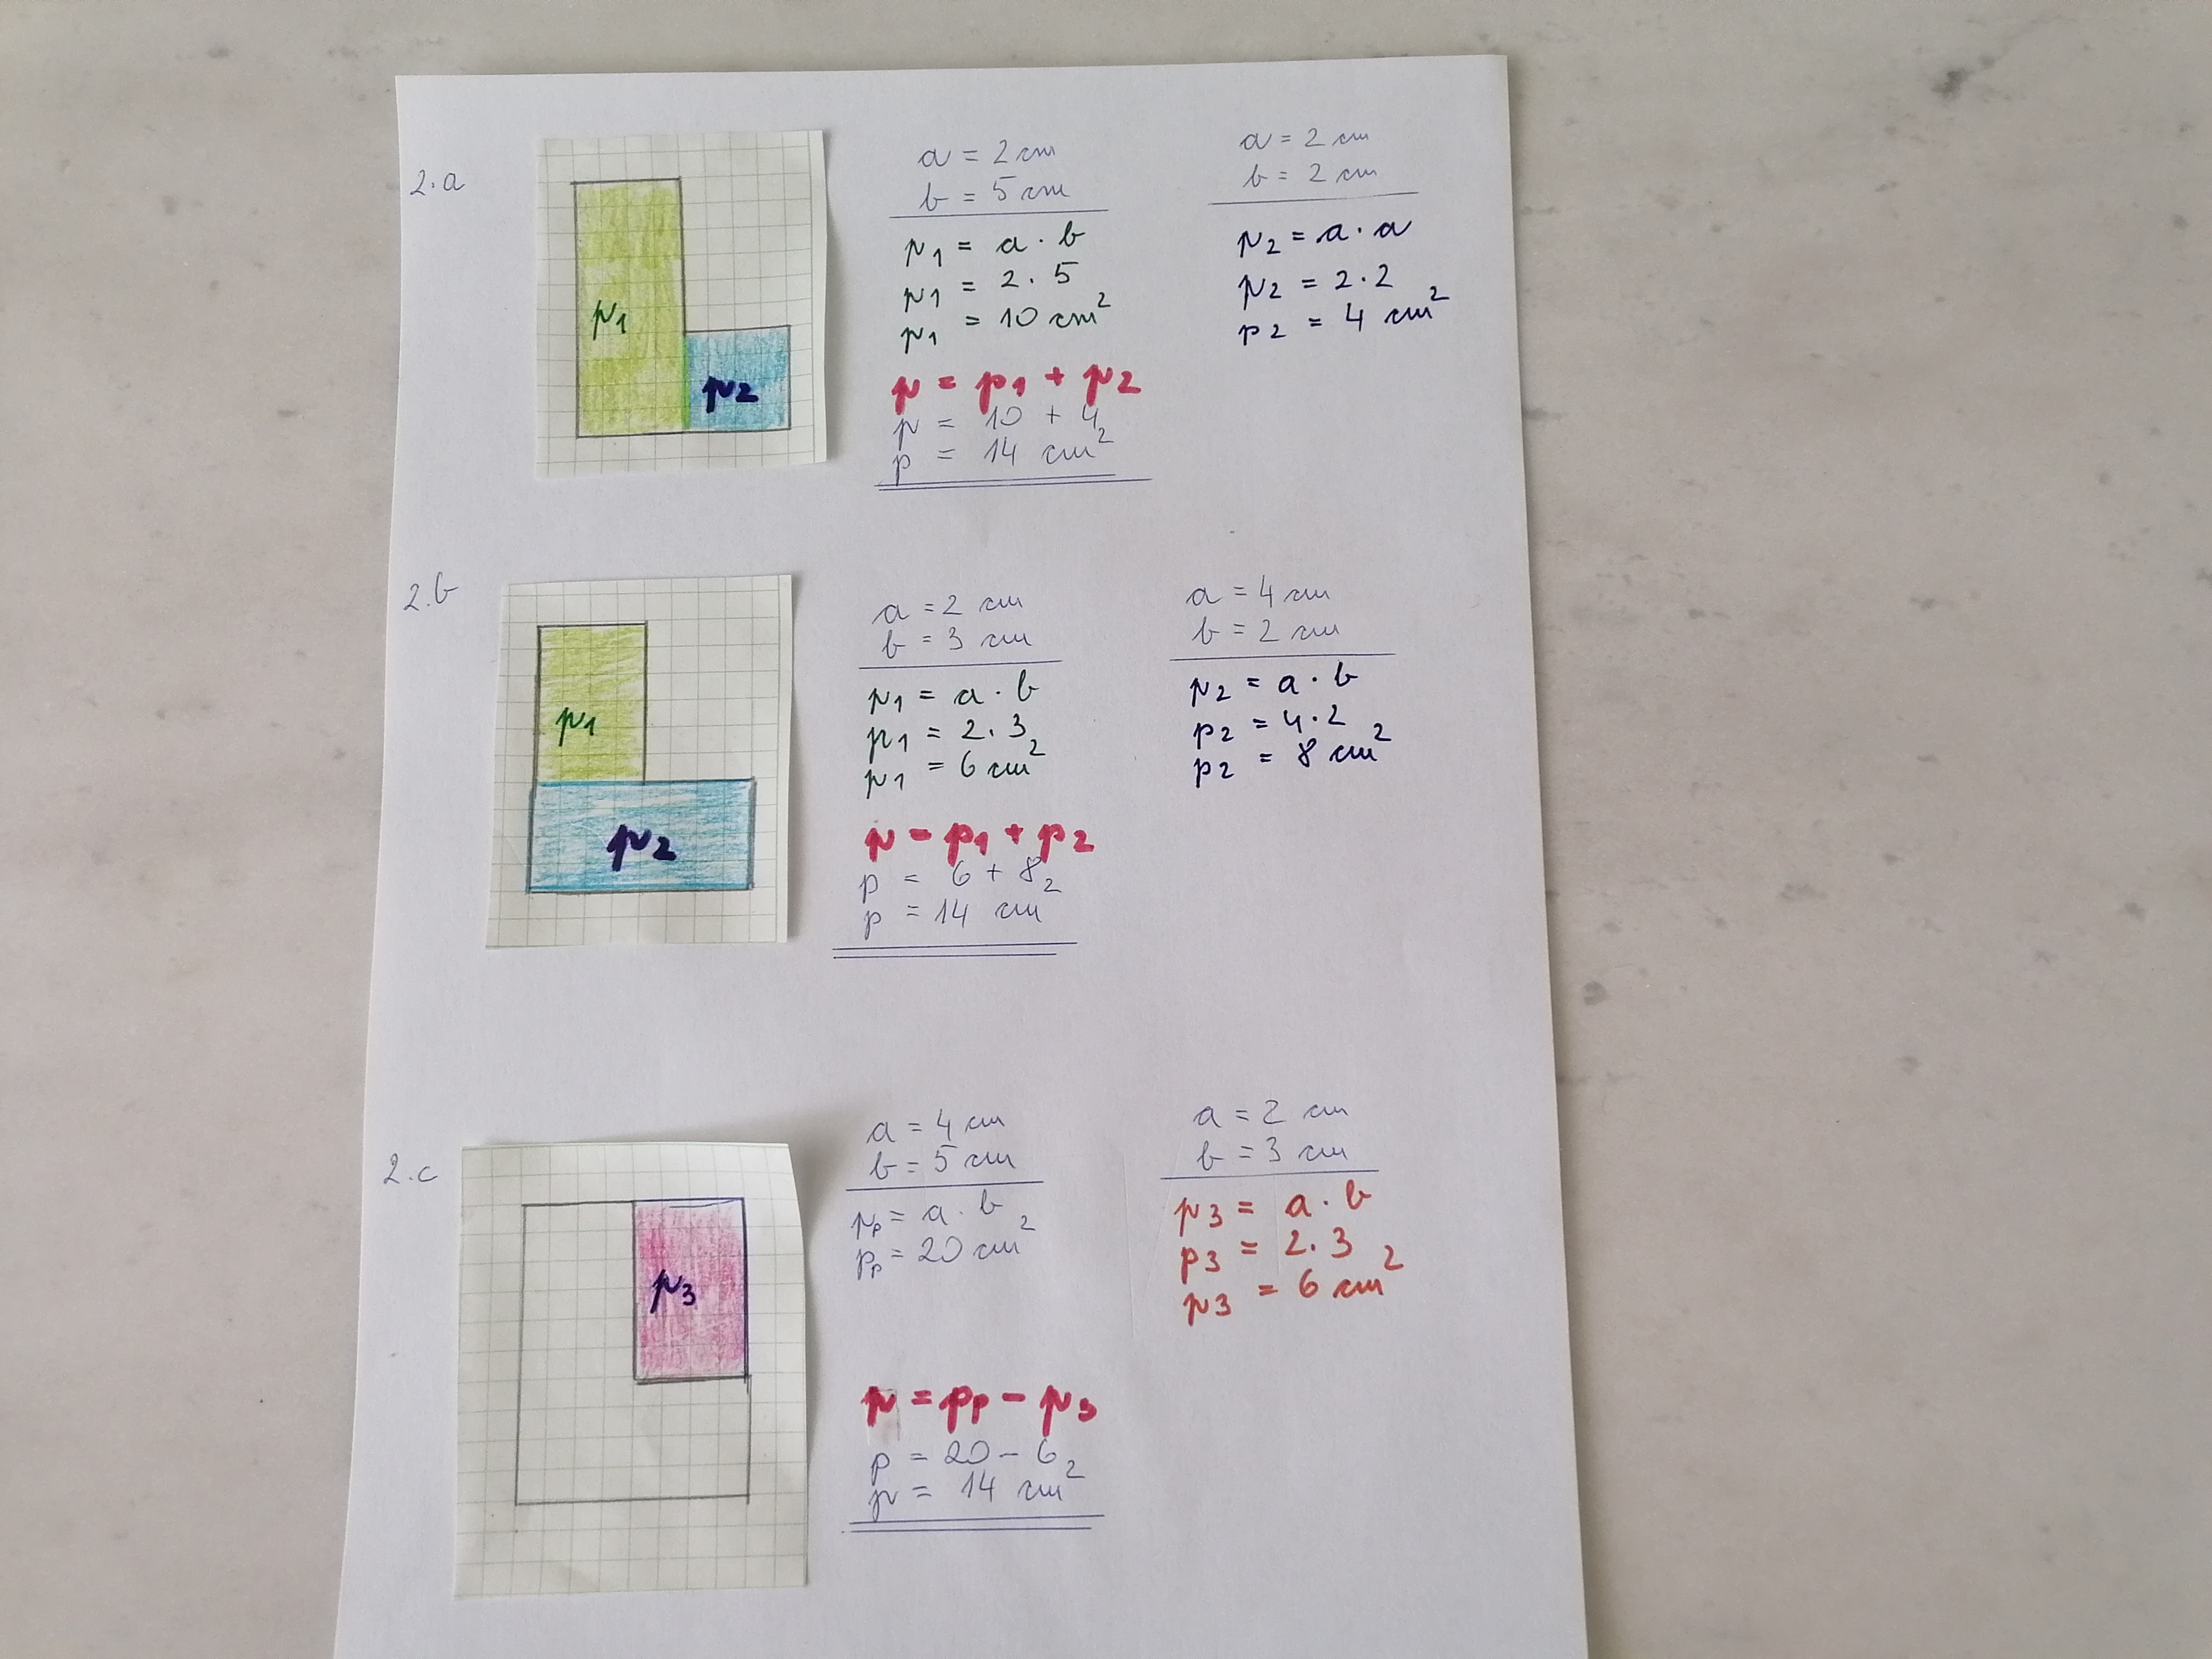 2.a
p1
p2
a = 2 cm
b = 5 cm
p1 = a · b
p1 = 2 · 5
p1 = 10 cm²
p = p1 + p2
p = 10 + 4
p = 14 cm²
a = 2 cm
b = 2 cm
p2 = a · a
p2 = 2 · 2
p2 = 4 cm²
2.b
p1
p2
a = 2 cm
b = 3 cm
p1 = a · b
p1 = 2 · 3
p1 = 6 cm²
p = p1 + p2
p = 6 + 8
p = 14 cm²
a = 4 cm
b = 2 cm
p2 = a · b
p2 = 4 · 2
p2 = 8 cm²
2.c
p3
a = 4 cm
b = 5 cm
pp = a · b
pp = 20 cm²
p = pp - p3
p = 20 - 6
p = 14 cm²
a = 2 cm
b = 3 cm
p3 = a · b
p3 = 2 · 3
p3 = 6 cm²